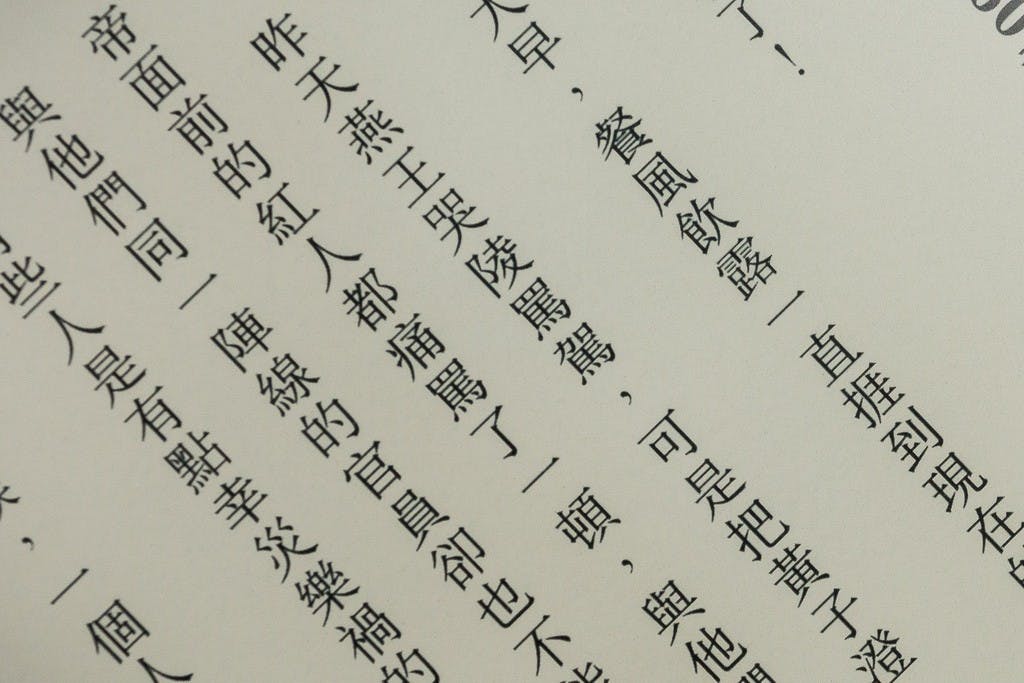 了！
早，餐風飲露一直捱到現在
昨天燕王哭陵罵駕，可是把黃子澄
帝面前的紅人都痛罵了一頓，與他們
與他們同一陣線的官員卻也不能
些人是有點幸災樂禍的
，一個人